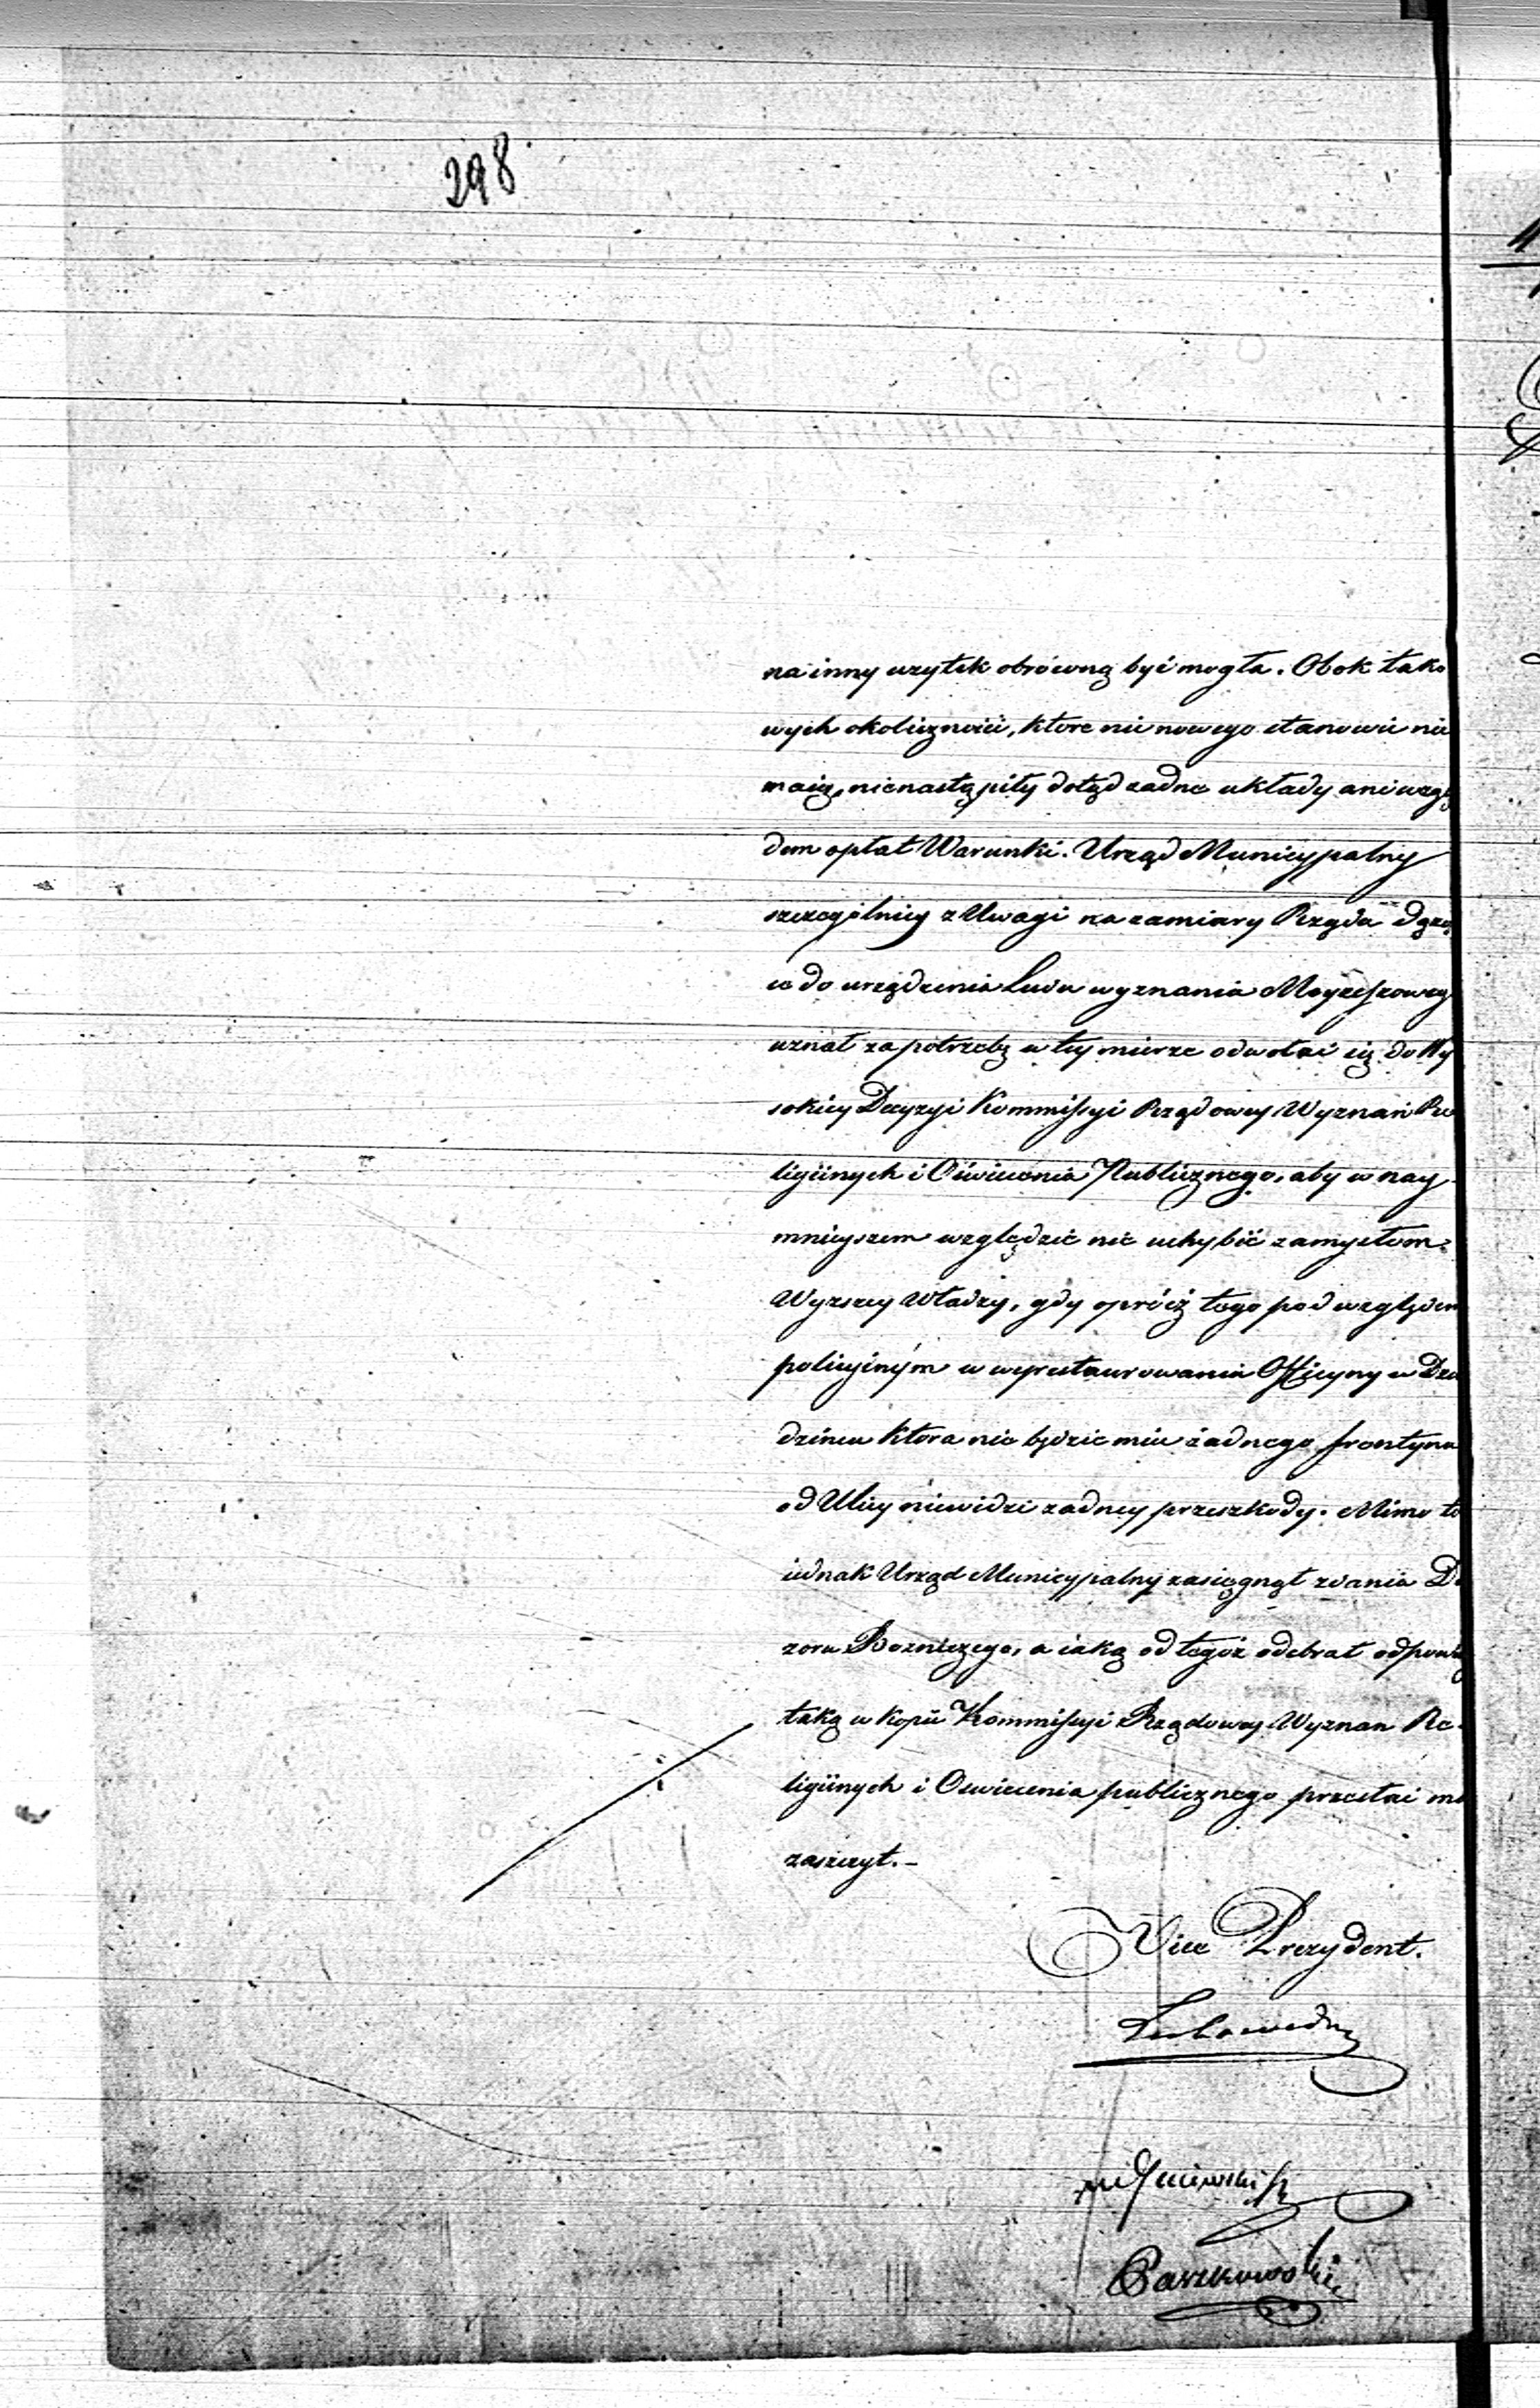 298
na inny uzytek obróconą być mogła. Obok tako
wych okoliczności, które nic nowego stanowić nie
maią, nienastąpiły dotąd żadne układy ani wzglę
dem opłat Warunki. Urząd Municypalny
szczególniey z Uwagi na zamiary Rządu dążą
ce do urządzenia Ludu wyznania Moyżeszowego
uznał za potrzebę w tey mierze odwołać się do Wy
sokiey Decyzyi Kommissyi Rządowey Wyznań Re
ligiinych i Oświecenia Publicznego, aby w nay
mnieyszem względzie nie uchybić zamysłom
Wyższey Władzy, gdy oprócz tego pod względem
policyinym w wyrestaurowaniu Officyny w Dzie
dzińcu która nie będzie mieć żadnego frontynu
od Ulicy niewidzi zadney przeszkody. Mimo to
iednak Urząd Municypalny zasięgnął zdania Do
zoru Bożniczego, a iaką od tegoż odebrał odpowie
taką w kopii Kommissyi Rządowey Wyznan Re-
ligiinych i Oswiecenia publicznego przesłać ma
zaszczyt.-
Vice Prezydent.
Lubowidzki
Paszkowski